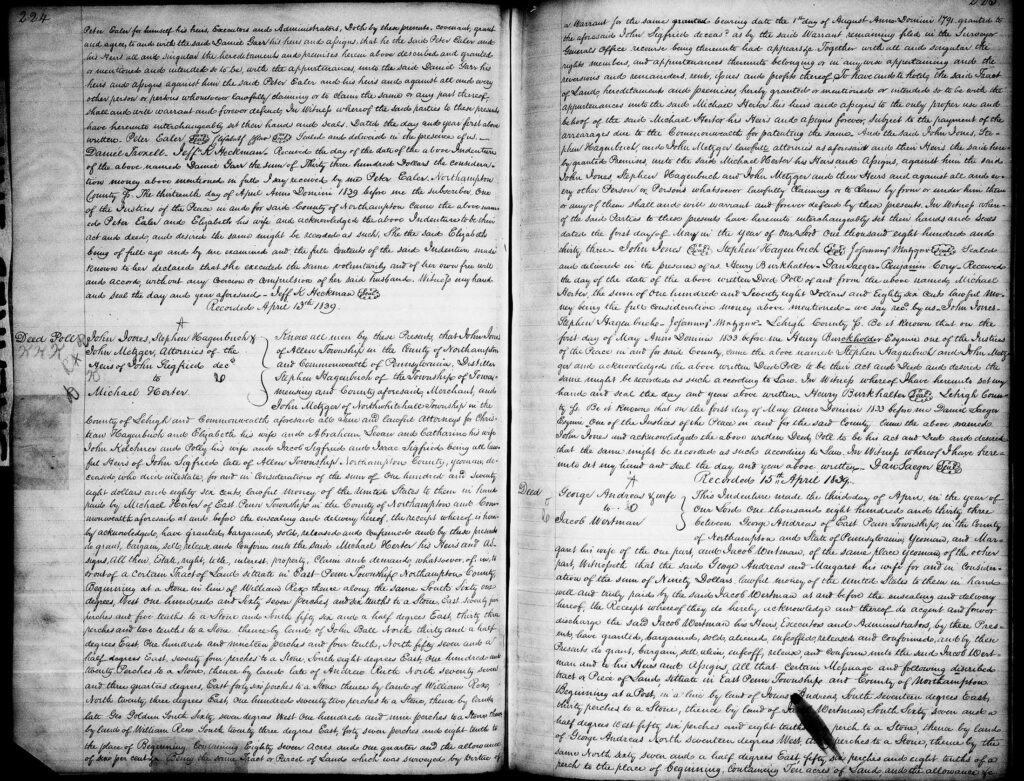 224
Peter Ealer for himself his heirs, Executors and Administrators, Doth by these presents, covenant, grant
and agree, to and with the said Daniel Garr his heirs and assigns, that he the said Peter Ealer and
his Heirs all and singular the hereditaments and premises herein above described and granted
or mentioned and intended so to be, with the appurtenances unto the said Daniel Garr his
heirs and assigns against him the said Peter Ealer and his heirs and against all and every
other person or persons whomsoever lawfully claiming or to claim the same or any part thereof,
shall and will warrant and forever defend. In Witness whereof the said parties to these presents
have hereunto interchangeably set their hands and seals. Dated the day and year first above
written. Peter Ealer Seal Elizabeth Ealer Seal Sealed and delivered in the presence of us
Daniel Saxsell. Jeff. K Heckman. Received the day of the date of the above Indenture
of the above named Daniel Garr the sum of Thirty three hundred Dollars the considera-
tion money above mentioned in full. I say received by me Peter Ealer. Northampton
County Ss. The thirteenth day of April Anno Domini 1839 before me the subscriber, One
of the Justices of the Peace in and for said County of Northampton Came the above nam-
ed Peter Ealer and Elizabeth his wife and acknowledged the above Indenture to be their
act and deed, and desired the same might be recorded as such, She the said Elizabeth
being of full age and by me examined and the full contents of the said Indenture made
known to her declared that she executed the same voluntarily and of her own free will
and accord, without any Coercion or compulsion of her said husband. Witness my hand
and seal the day and year aforesaid - Jeff K Heckman Seal
Recorded April 13th 1839.
Deed Poll
John Jones, Stephen Hagenbuch &
John Metzger, Attornies of the
Heirs of John Siegfried decd
to
Michael Herter
Know all men by these Presents, that John Jones
of Allen Township in the County of Northampton
and Commonwealth of Pennsylvania, Distiller
Stephen Hagenbuch of the Township of Towa-
mensing and County aforesaid, Merchant, and
John Metzger of Northwhitehall Township in the
County of Lehigh and Commonwealth aforesaid all are lawful Attornies for Chris-
tian Hagenbuch and Elizabeth his wife and Abraham Levan and Catharine his wife
John Kuchner and Polly his wife and Jacob Siegfried and Isaac Siegfried being all law-
ful Heirs of John Siegfried late of Allen Township, Northampton County, yeoman, de-
ceased who died intestate, for and in Consideration of the sum of One hundred and seventy
eight dollars and eighty six cents, lawful money of the United States to them in hand
paid by Michael Herter of East Penn Township in the County of Northampton and Com-
monwealth aforesaid at and before the ensealing and delivery hereof, the receipt whereof is here-
by acknowledged, have granted, bargained, sold, released and confirmed and by these presents
do grant, bargain, sell, release and Confirm unto the said Michael Herter his Heirs and As-
signs, All their Estate, right, title, interest, property, Claim and demand, whatsoever of, in, to
or out of a Certain Tract of Land situate in East Penn Township Northampton County
Beginning at a Stone in line of William Rex thence along the same South Sixty one
degrees West One hundred and Sixty seven perches and six tenths to a Stone, East seventy per-
ches and five tenths to a Stone and South fifty six and a half degrees East, thirty three
perches and two tenths to a Stone, thence by land of John Ball North thirty and a half
degrees East One hundred and nineteen perches and four tenths, North fifty seven and a
half degrees East, seventy four perches to a Stone, South eight degrees East One hundred and
twenty Perches to a Stone, thence by land late of Andrew Ruch North seventy seven
and three quarters degrees, East forty six perches to a Stone thence by lands of William Rex,
North twenty, three degrees East, One hundred seventy two perches to a Stone, thence by lands
late Geo Golden South Sixty, seven degrees West One hundred and nine perches to a Stone, thence
by lands of William Rex South twenty three degrees East forty seven perches and eight tenths to
the place of Beginning, Containing Eighty seven Acres and one quarter and the allowance
of six per cent &c. Being the same Tract or Parcel of Lands which was surveyed by virtue of
a Warrant for the same granted bearing date the 1st day of August Anno Domini 1791, granted to
the aforesaid John Siegfried deceased as by the said Warrant remaining filed in the Surveyor
Generals Office recourse being thereunto had appears &c Together with all and singular the
rights members, and appurtenances thereunto belonging or in any wise appertaining and the
reversions and remainders, rents, Issues and profits thereof. To have and to hold, the said Tract
of Land, hereditaments and Premises, hereby granted or mentioned or intended so to be with the
appurtenances unto the said Michael Herter his heirs and assigns to the only proper use and
behoof of the said Michael Herter his Heirs and Assigns forever, Subject to the payment of the
arrearages due to the Commonwealth for patenting the same. And the said John Jones, Ste-
phen Hagenbuch, and John Metzger lawful attornies as aforesaid and their Heirs the said here-
by granted Premises, unto the said Michael Herter his Heirs and Assigns, against them the said
John Jones, Stephen Hagenbuch and John Metzger and their Heirs and against all and ev-
ery other Person or Persons whatsoever lawfully Claiming or to Claim by from or under him them
or any of them shall and will warrant and forever defend by these presents. In Witness where-
of the said Parties to these presents have hereunto interchangeably set their hands and Seals
dated the first day of May in the Year of our Lord One thousand eight hundred and
thirty three - John Jones Seal Stephen Hagenbuch Seal Johannes Metzger Seal Sealed
and delivered in the presence of us Henry Burkhalter - Dan Saeger - Benjamin Cory - Received
the day of the date of the above written Deed Poll of and from the above named Michael
Herter, the sum of One hundred and Seventy eight Dollars and Eighty six Cents lawful mo-
ney being the full consideration money above mentioned - we say recd by us - John Jones
Stephen Hagenbuch - Johannes Metzger - Lehigh County Ss. Be it Known that on the
first day of May Anno Domini 1833 before me Henry Burckholder Esquire one of the Justices
of the Peace in and for said County, came the above named Stephen Hagenbuch and John Metz-
ger and acknowledged the above written Deed Poll to be their Act and Deed and desired the
same might be recorded as such according to Law. In Witness whereof I have hereunto set my
hand and seal the day and year above written. Henry Burkhalter Seal Lehigh County
Ss. Be it Known that on the first day of May Anno Domini 1833 before me Daniel Saeger
Esquire One of the Justices of the Peace in and for the said County, Came the above named
John Jones and acknowledged the above written Deed Poll to be his Act and Deed and desired
that the same might be recorded as such according to Law. In Witness whereof I have here-
unto set my hand and seal the day and year above written - Dan Saeger Seal
Recorded 15th April 1839.
Deed
George Andreas & wife
to
Jacob Wertman
This Indenture made the third day of April, in the year of
our Lord One thousand eight hundred and thirty three
between George Andreas of East Penn Township, in the County
of Northampton and State of Pennsylvania, Yeoman, and Mar-
garet his wife of the one part, and Jacob Wertman, of the same place Yeoman, of the other
part, Witnesseth that the said George Andreas and Margaret his wife for and in Consider-
ation of the sum of Ninety Dollars, lawful money of the United States to them in hand
well and truly paid by the said Jacob Wertman at and before the ensealing and delivery
hereof, the Receipt whereof they do hereby acknowledge and thereof do acquit and forever
discharge the said Jacob Wertman his Heirs, Executors and Administrators, by these Pres-
ents, have granted, bargained, sold, aliened, enfeoffed, released and Confirmed, and by these
Presents do grant, bargain, sell alien, enfeoff, release and Confirm unto the said Jacob Wert-
man and to his Heirs and Assigns, All that Certain Messuage and following described
tract or Piece of Land situate in East Penn Township and County of Northampton
Beginning at a Post, in a line by land of Jonas Andreas, South seventeen degrees East,
thirty perches to a Stone, thence by land of Wertman, South Sixty seven and a
half degrees West fifty six perches and eight tenths perch to a Stone, thence by lands
of George Andreas North seventeen degrees West, perches to a Stone, thence by the
same North Sixty seven and a half degrees East fifty six perches and eight tenths of a
perch to the place of beginning, containing Ten acres of Land and the allowance &c